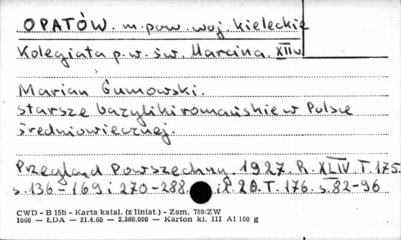 OPATÓW. m. pow. woj. kieleckie
Kolegiata p.w. św. Marcina. XII w
Marian Gumowski.
starsze bazyliki romańskie w Polsce
średniowiecznej.
Przegląd Powszechny. 1927. R. XLIV T. 175.
s. 136-169 i 270-288. i R. 20. T. 176. s. 82-96
CWD - B 15b - Karta katal. (z liniat.) - Zam. 788/ZW
1060 - ŁDA - 21.4.60 - 2.360.000 - Karton kl. III A1 160 g